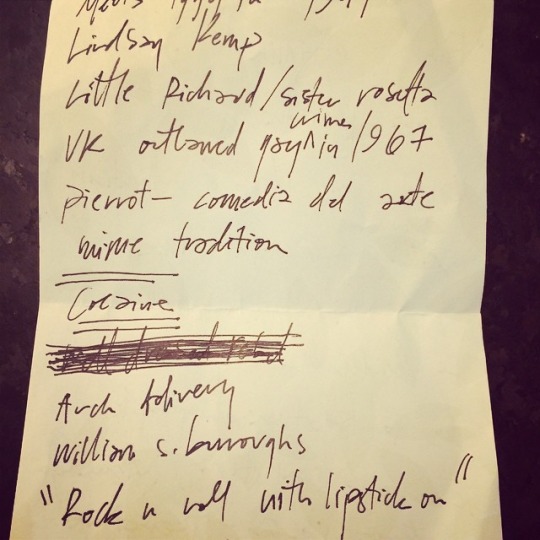 Lindsay Kemp
Little Richard/sister rosetta
UK outlawed gay^in 1967
mimes
pierrot - comedia del arte
mime tradition
Cocaine
Arch delivery
William s. burroughs
"Rock n roll with lipstick on"